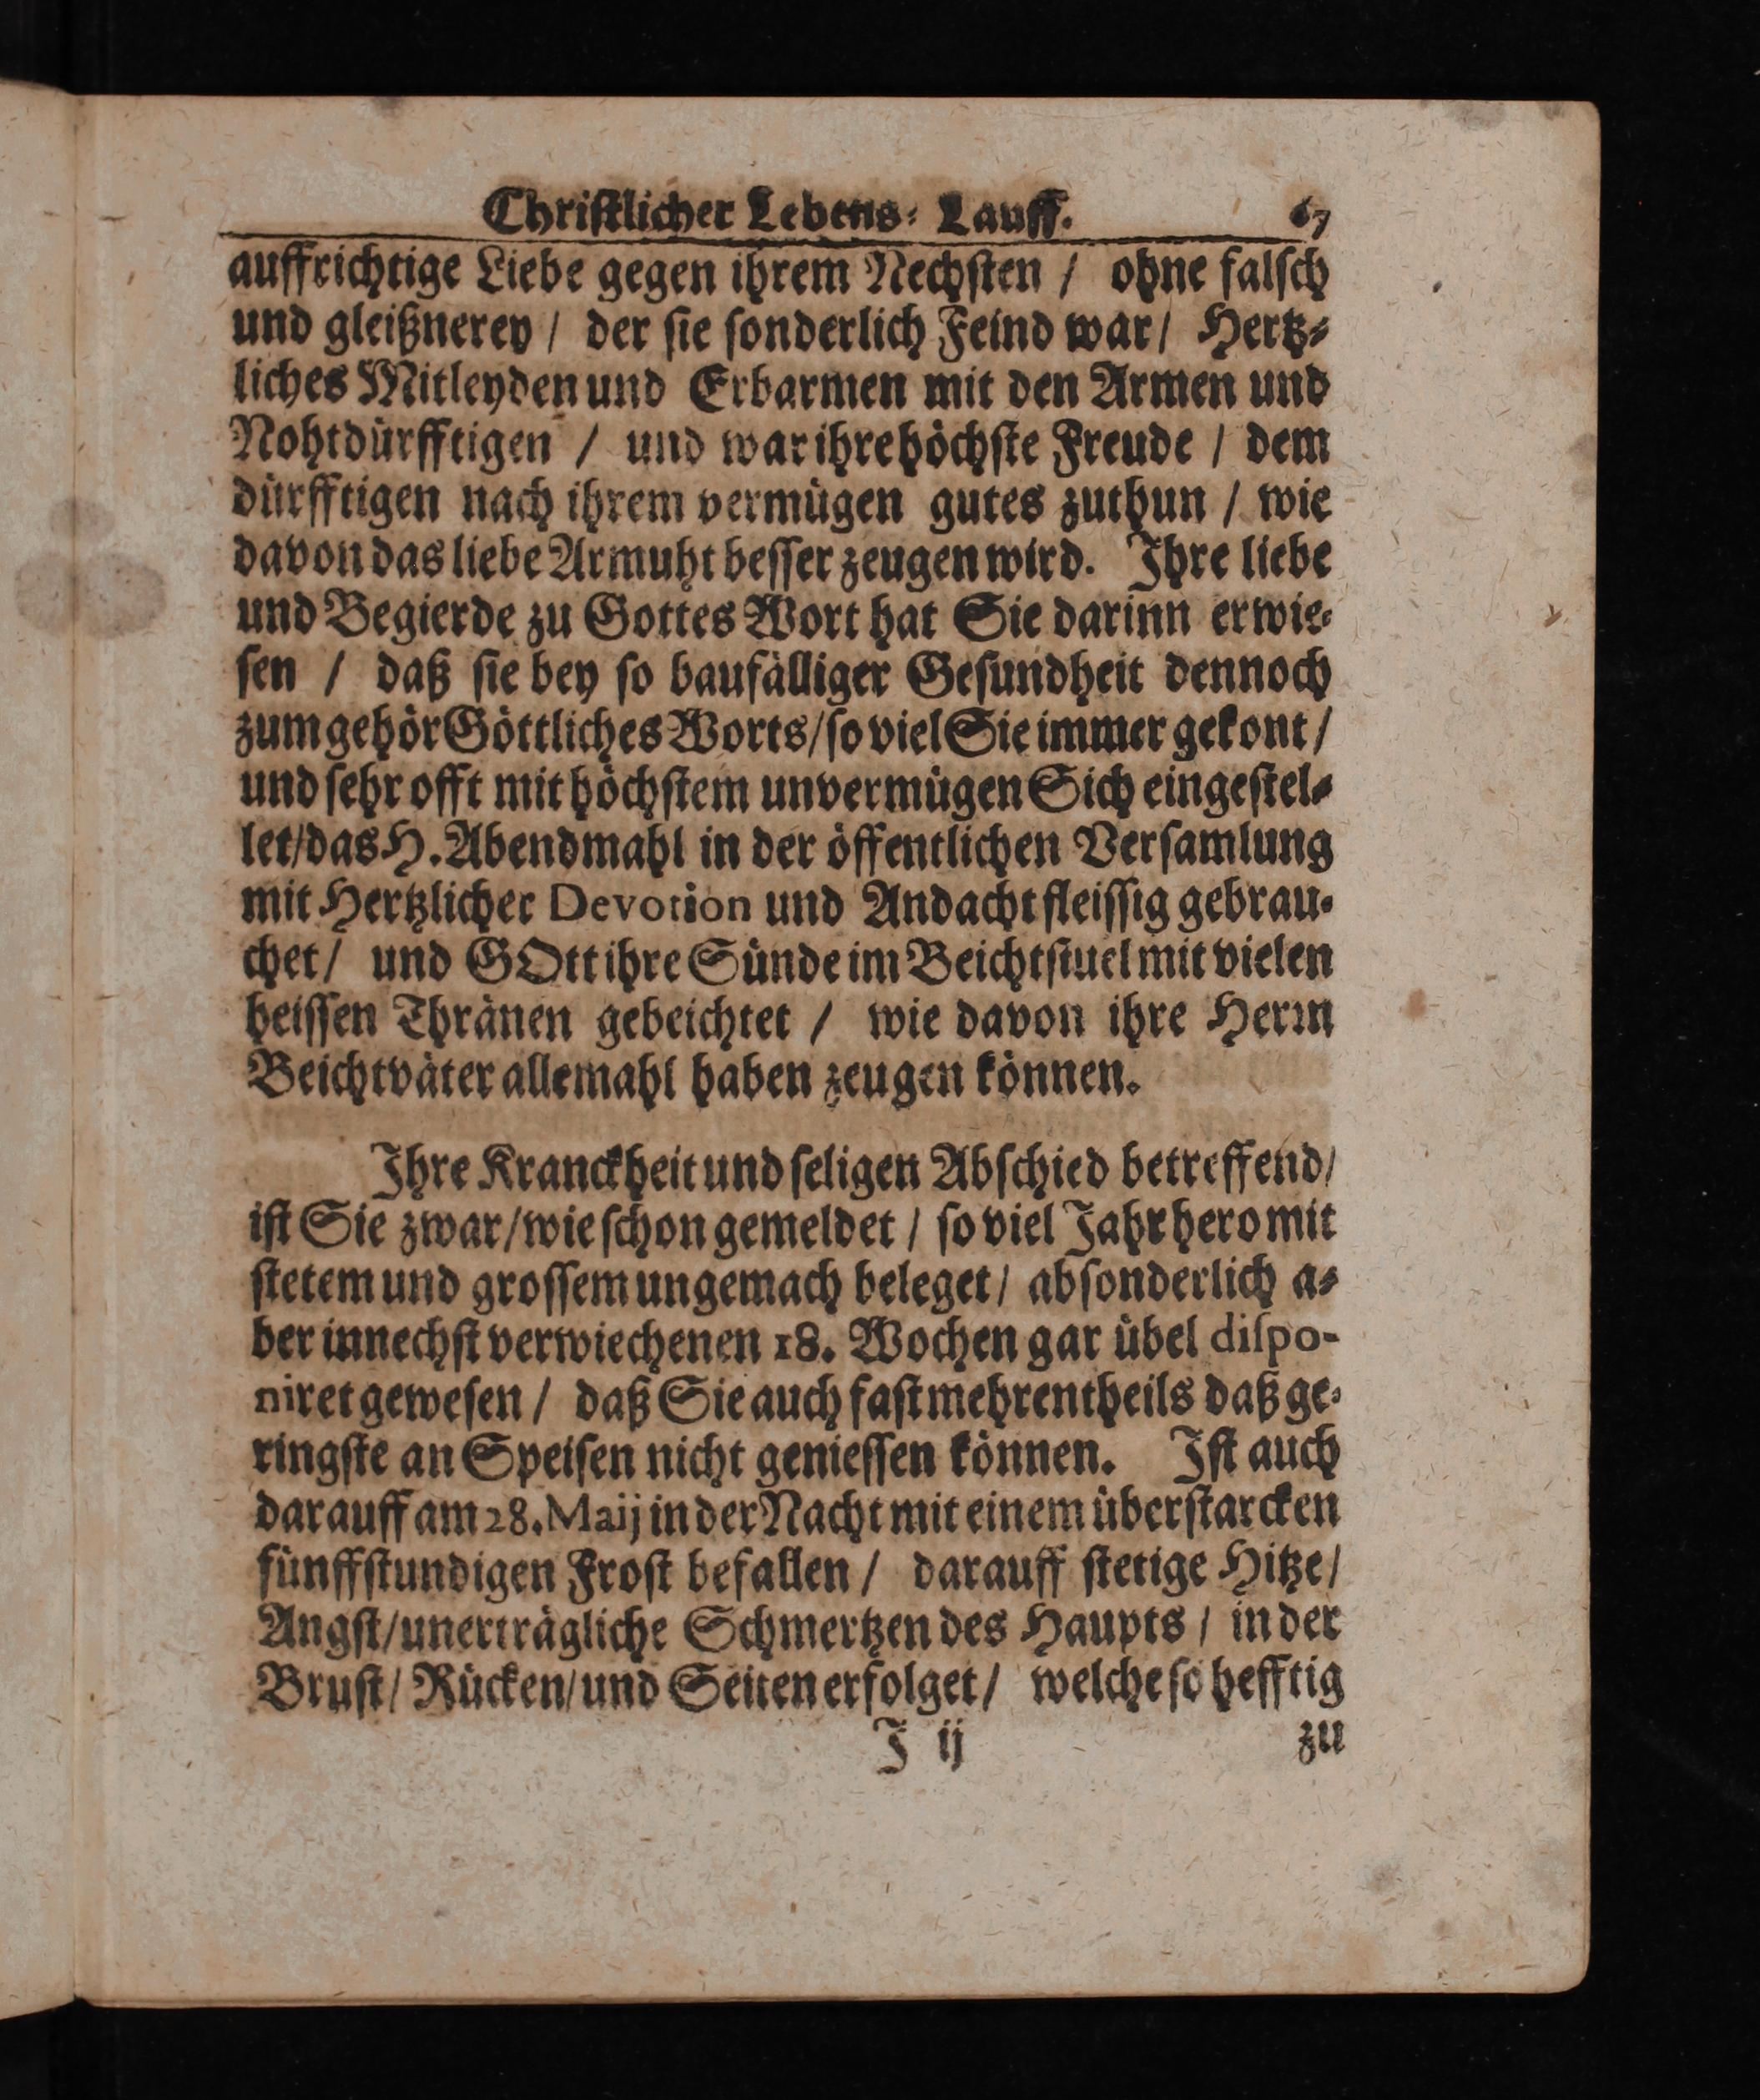 Christlicher Lebens-Lauff. 67
auffrichtige Liebe gegen ihrem Nechsten / ohne falsch
und gleißnerey / der sie sonderlich Feind war / Hertz-
liches Mitleyden und Erbarmen mit den Armen und
Nohtdürfftigen / und war ihre höchste Freude / dem
dürfftigen nach ihrem vermügen gutes zuthun / wie
davon das liebe Armuht besser zeugen wird. Ihre liebe
und Begierde zu Gottes Wort hat Sie darinn erwie-
sen / daß sie bey so baufälliger Gesundheit dennoch
zum gehör Göttliches Worts / so viel Sie immer gekont /
und sehr offt mit höchstem unvermügen Sich eingestel-
let / das H. Abendmahl in der öffentlichen Versamlung
mit Hertzlicher Devotion und Andacht fleissig gebrau-
chet / und GOtt ihre Sünde im Beichtstuel mit vielen
heissen Thränen gebeichtet / wie davon ihre Herrn
Beichtväter allemahl haben zeugen können.
Ihre Kranckheit und seligen Abschied betreffend /
ist Sie zwar / wie schon gemeldet / so viel Jahr hero mit
stetem und grossem ungemach beleget / absonderlich a-
ber innechst verwiechenen 18. Wochen gar übel dispo-
niret gewesen / daß Sie auch fast mehrentheils daß ge-
ringste an Speisen nicht geniessen können. Ist auch
darauff am 28. Maij in der Nacht mit einem überstarcken
fünffstundigen Frost befallen / darauff stetige Hitze /
Angst / unerträgliche Schmertzen des Haupts / in der
Brust / Rücken / und Seiten erfolget / welche so hefftig
J ij zu